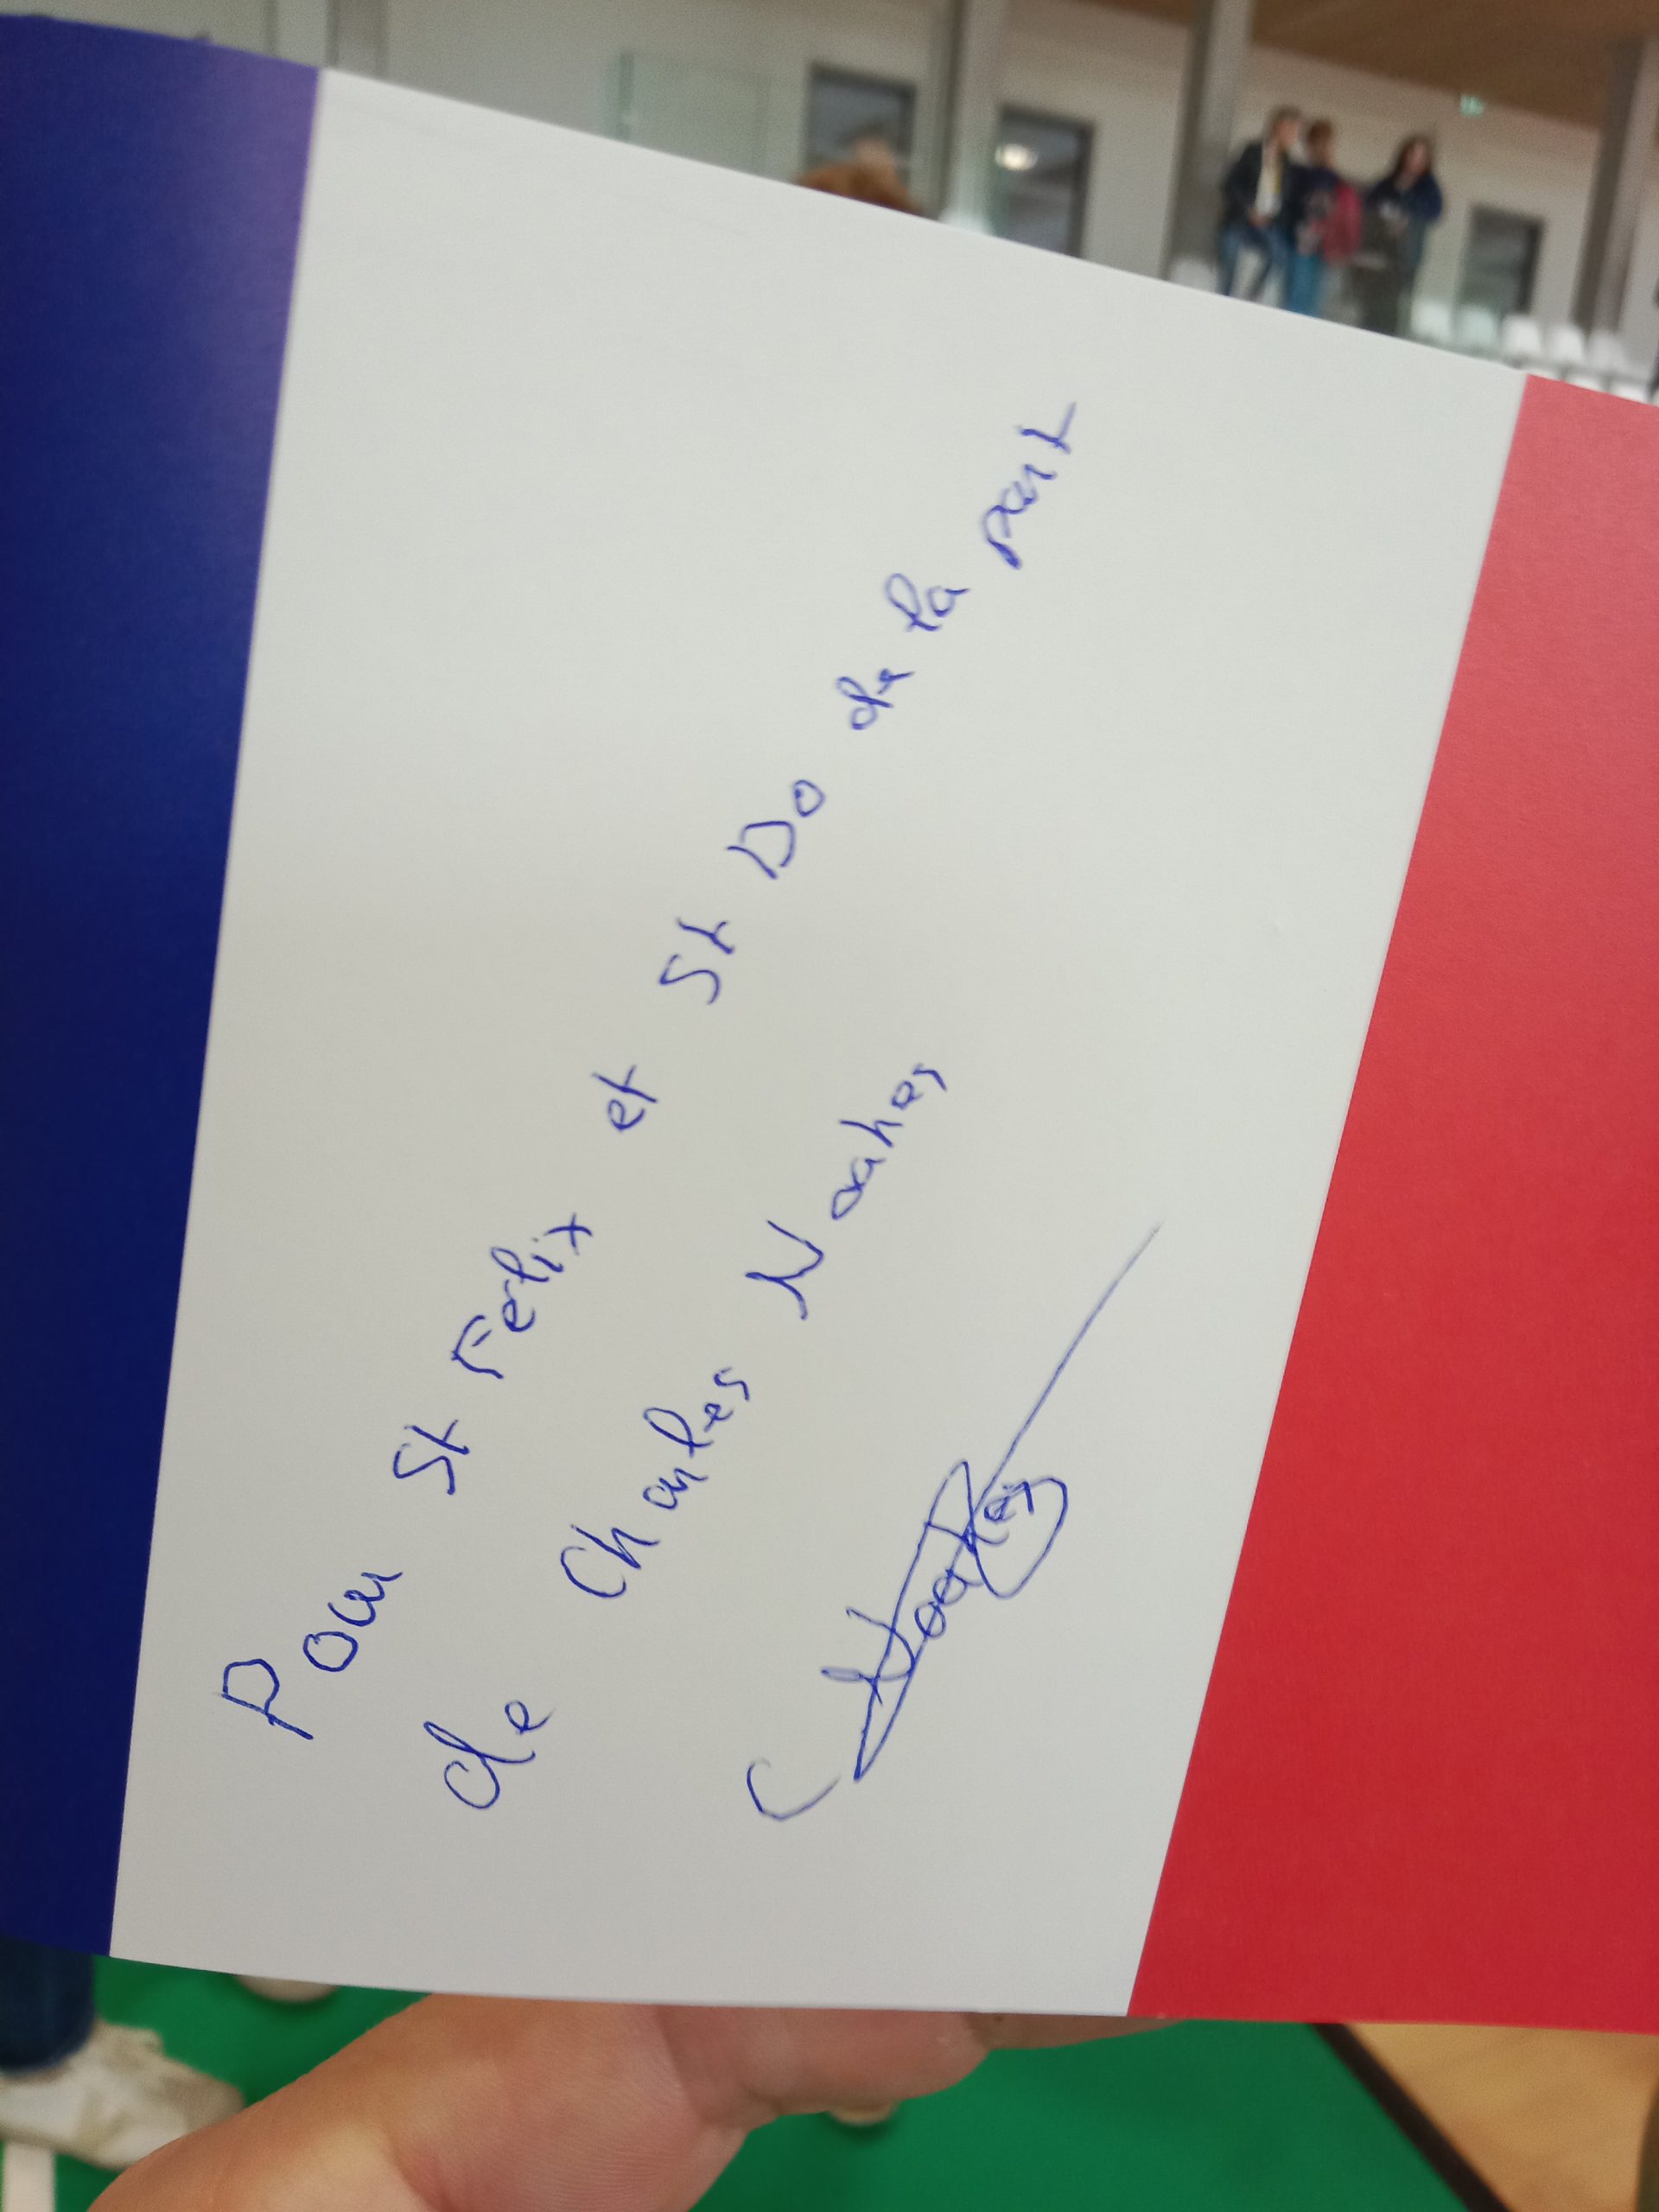 Pour St Felix et St Do de la part
de Charles Noakes
Noakes